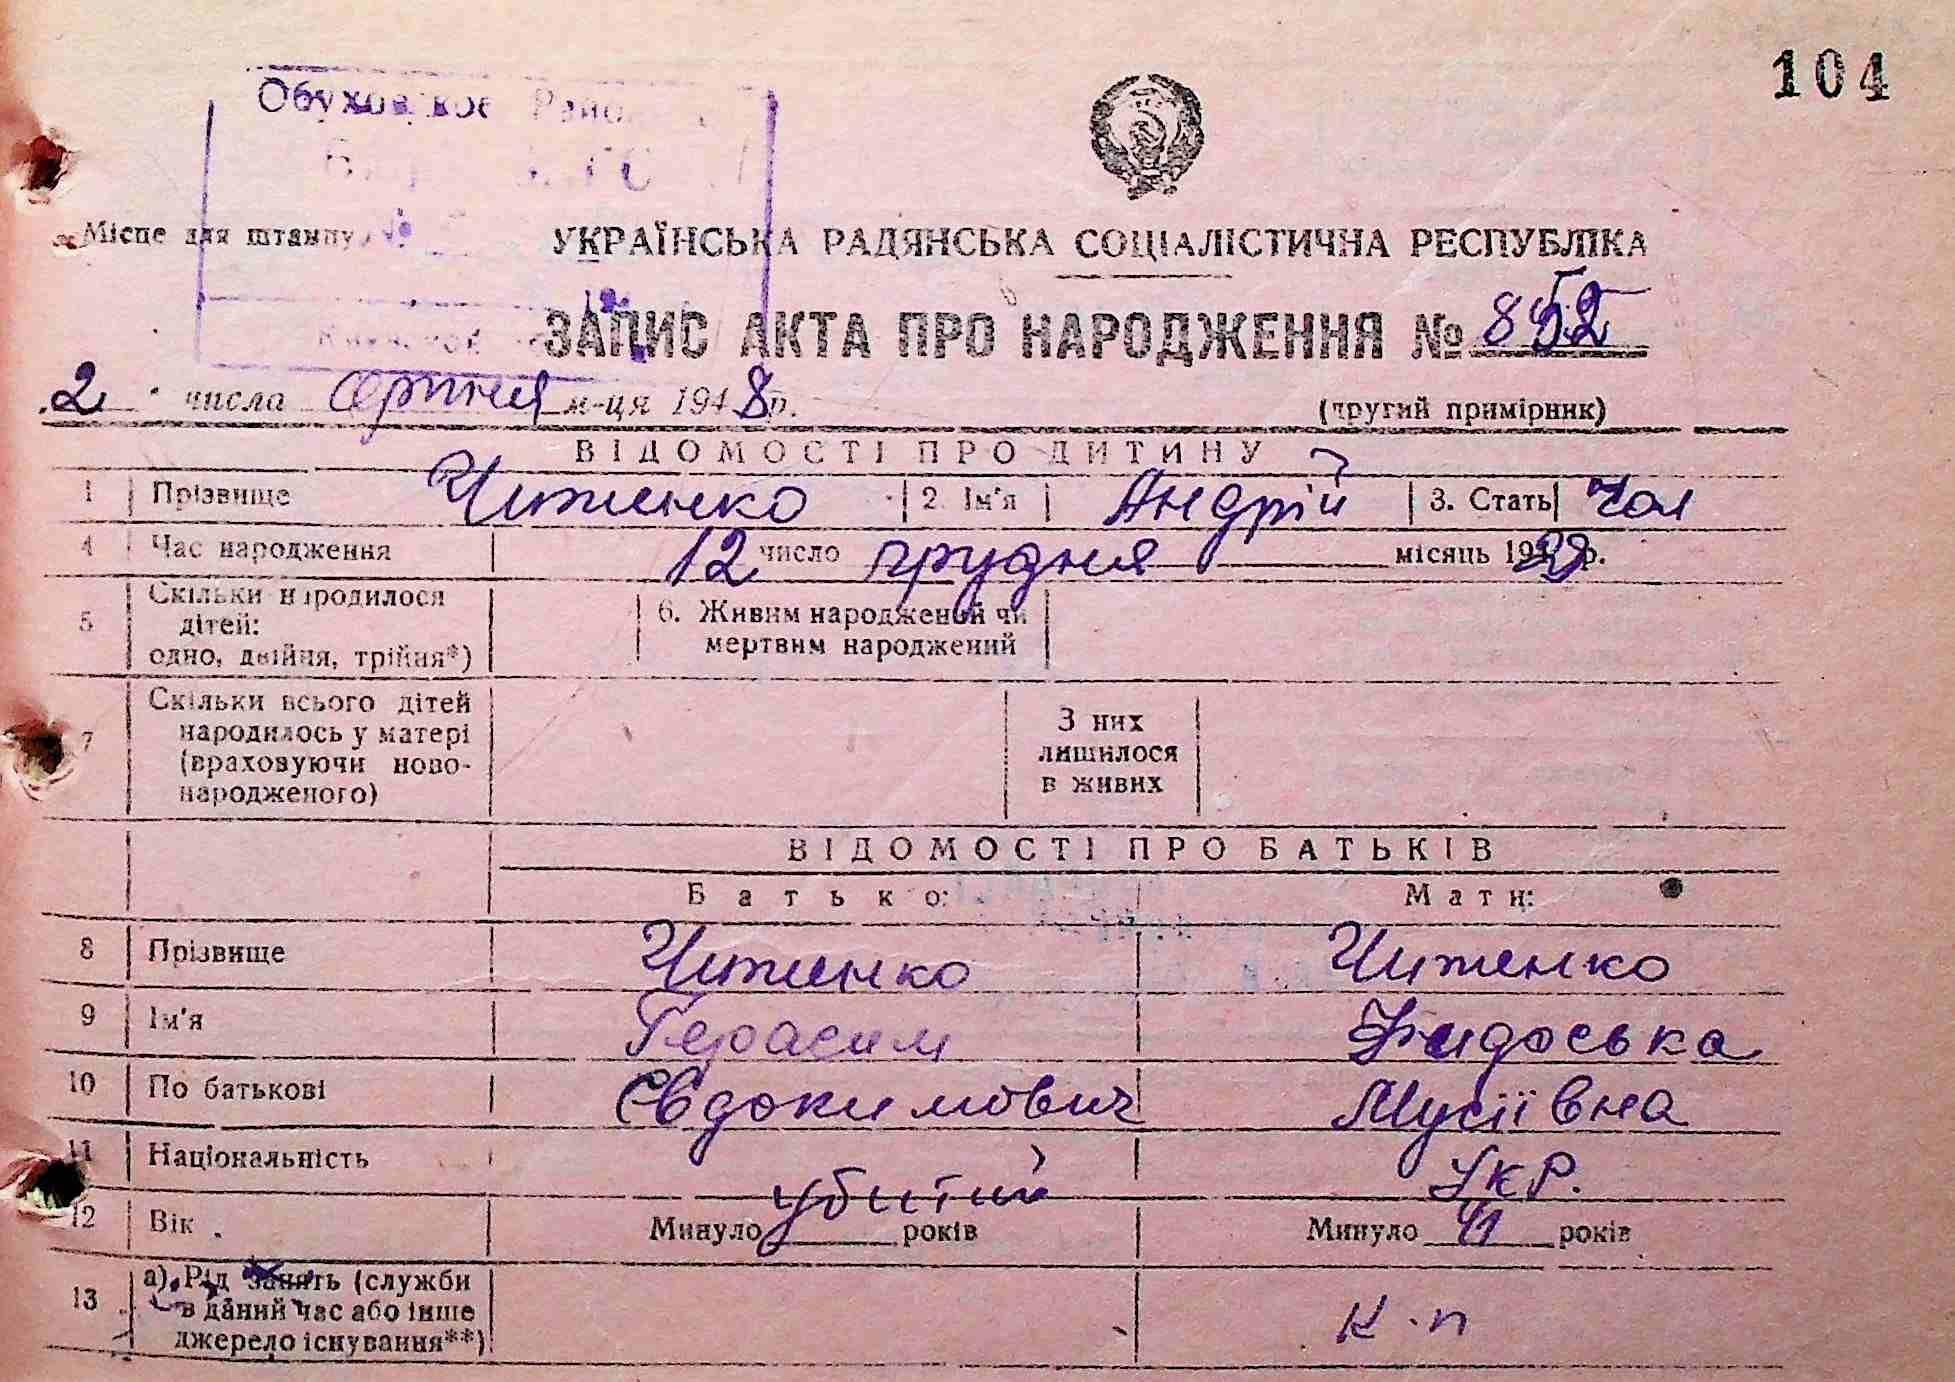 104
Обуховское Район
Місце для штампу
УКРАЇНСЬКА РАДЯНСЬКА СОЦІАЛІСТИЧНА РЕСПУБЛІКА
ЗАПИС АКТА ПРО НАРОДЖЕННЯ № 852
2 числа серпня м-ця 1948 р.
(другий примірник)
ВІДОМОСТІ ПРО ДИТИНУ
1 Прізвище Чиженко 2. Ім'я Андрій 3. Стать Чол
4 Час народження 12 число грудня місяць 1939 р.
5 Скільки народилося дітей: одно, двійня, трійня*) 6. Живим народжений чи мертвим народжений
7 Скільки всього дітей народилось у матері (враховуючи ново-народженого) З них лишилося в живих
ВІДОМОСТІ ПРО БАТЬКІВ
Батько: Мати:
8 Прізвище Чиженко Чиженко
9 Ім'я Герасим Фидоська
10 По батькові Євдокимович Мусіївна
11 Національність Укр.
убитий
12 Вік Минуло років Минуло 41 років
13 а) Рід занять (служби в даний час або інше джерело існування**) к.п